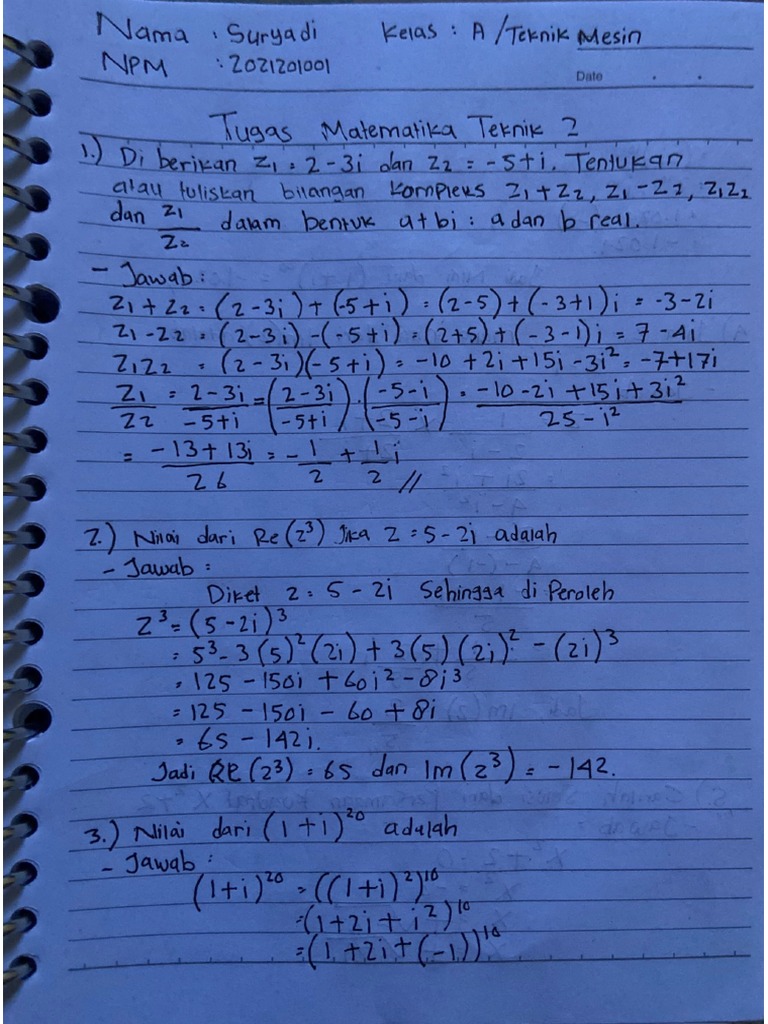 Nama : Suryadi Kelas : A / Teknik Mesin
NPM : 2021201001
Date
Tugas Matematika Teknik 2
1.) Di berikan Z₁ = 2 - 3i dan Z₂ = -5 + i. Tentukan
atau tuliskan bilangan Kompleks Z₁ + Z₂, Z₁ - Z₂, Z₁Z₂
dan Z₁/Z₂ dalam bentuk a + bi : a dan b real.
- Jawab :
Z₁ + Z₂ = (2 - 3i) + (-5 + i) = (2 - 5) + (-3 + 1) i = -3 - 2i
Z₁ - Z₂ = (2 - 3i) - (-5 + i) = (2 + 5) + (-3 - 1) i = 7 - 4i
Z₁Z₂ = (2 - 3i)(-5 + i) = -10 + 2i + 15i - 3i² = -7 + 17i
Z₁/Z₂ = (2 - 3i)/(-5 + i) = ((2 - 3i)/(-5 + i)) · ((-5 - i)/(-5 - i)) = (-10 - 2i + 15i + 3i²)/(25 - i²)
= (-13 + 13i)/26 = -1/2 + 1/2 i //
2.) Nilai dari Re (z³) Jika Z = 5 - 2i adalah
- Jawab :
Diket Z = 5 - 2i Sehingga di Peroleh
Z³ = (5 - 2i)³
= 5³ - 3 (5)² (2i) + 3 (5) (2i)² - (2i)³
= 125 - 150i + 60i² - 8i³
= 125 - 150i - 60 + 8i
= 65 - 142i.
Jadi Re (z³) = 65 dan Im (z³) = -142.
3.) Nilai dari (1 + i)²⁰ adalah
- Jawab :
(1 + i)²⁰ = ((1 + i)²)¹⁰
= (1 + 2i + i²)¹⁰
= (1 + 2i + (-1))¹⁰